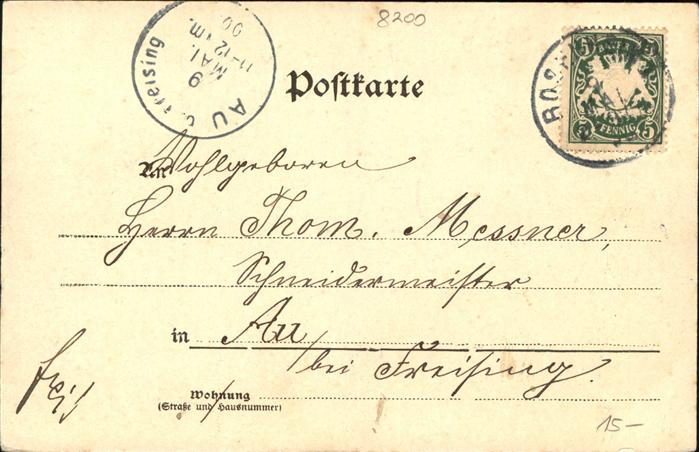 8200
AU b. Freising
9
MAI.
11-12 Vm.
00
Postkarte
5 5
PFENNIG
5 5
An Wohlgeboren
Herrn Thom. Messner,
Schneidermeister
in Au
bei Freising.
frei!
Wohnung
(Straße und Hausnummer)
15-